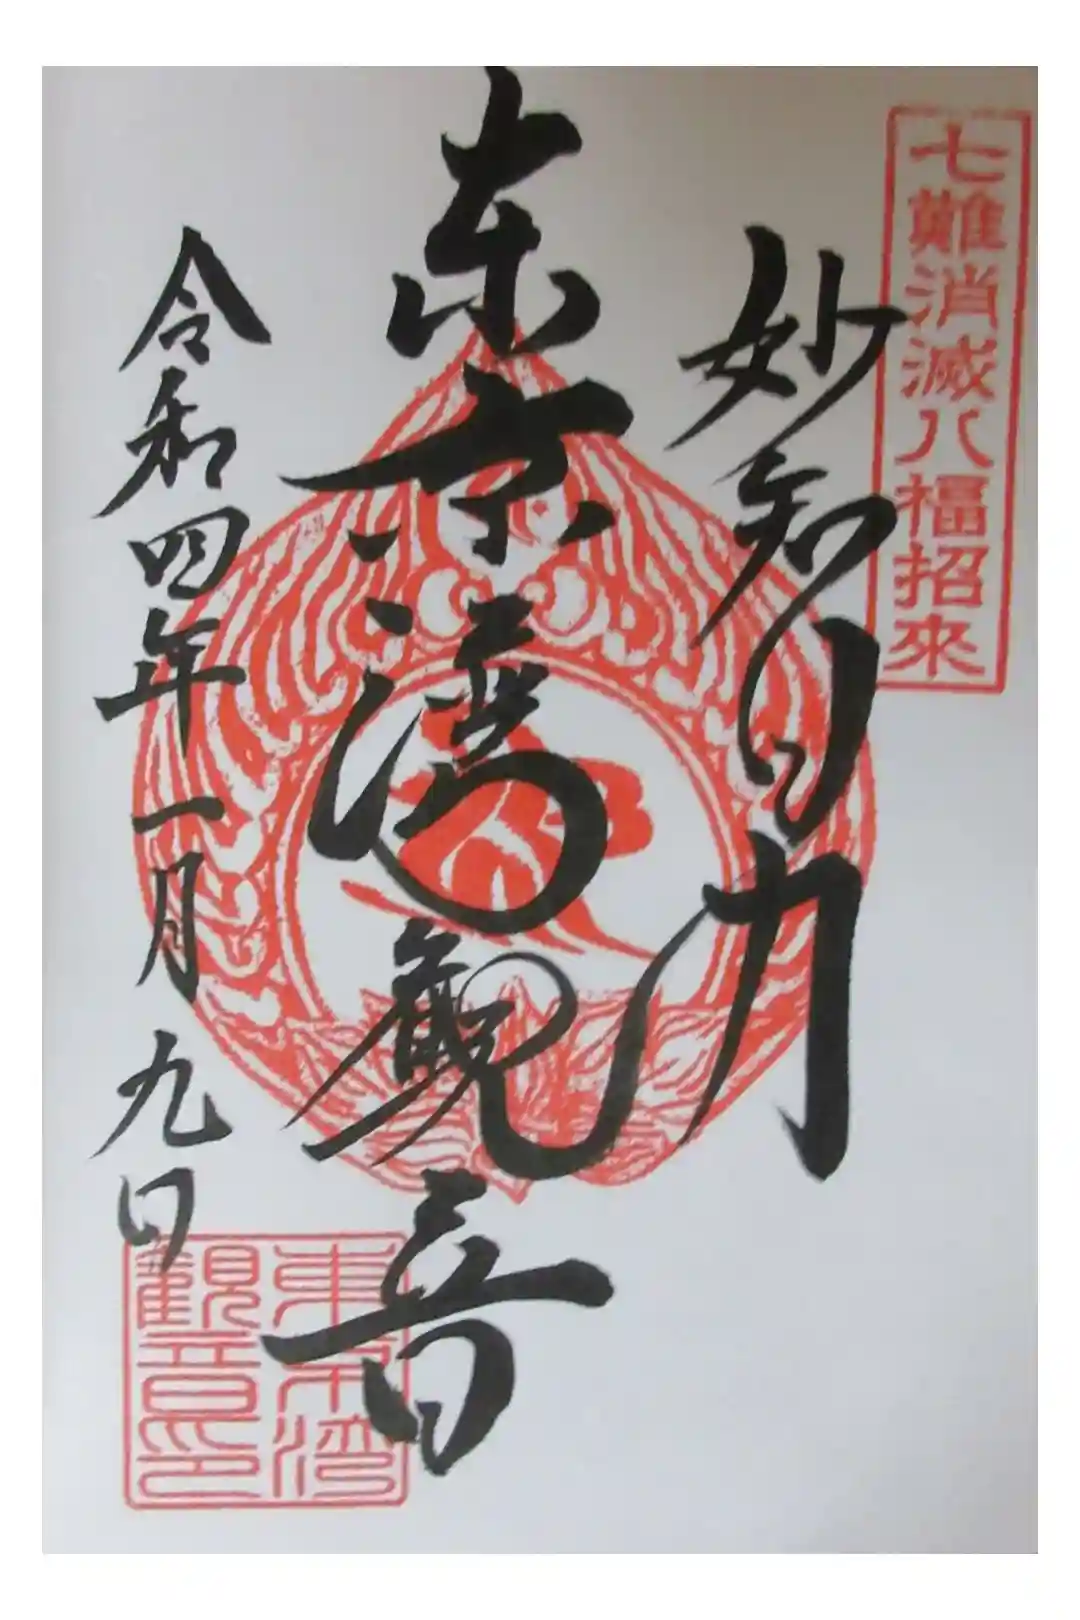 七難消滅八福招來
妙智力
東京湾観音
令和四年一月九日
東京湾
観音印